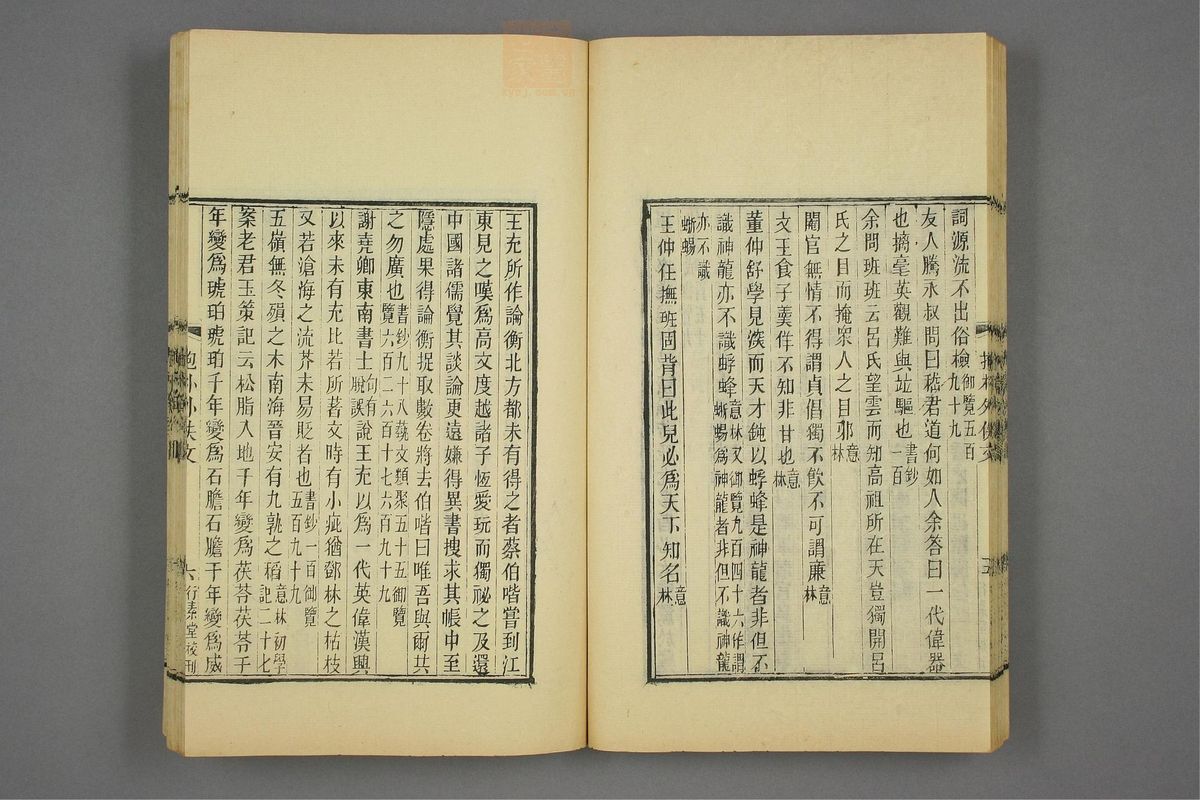 詞源流不出俗檢御覽五百九十九
友人騰永叔問曰嵇君道何如人余答曰一代偉器
也摛毫英觀難與竝驅也書鈔一百
余問班班云呂氏望雲而知高祖所在天豈獨開呂
氏之目而掩衆人之目邪意林
閹官無情不得謂貞倡獨不飮不可謂廉意林
文王食子羹佯不知非甘也意林
董仲舒學見深而天才鈍以蜉蜂是神龍者非但不
識神龍亦不識蜉蜂意林又御覽九百四十六作謂蜥蜴爲神龍者非但不識神龍
亦不識蜥蜴
王仲任撫班固背曰此兒必爲天下知名意林
五
王充所作論衡北方都未有得之者蔡伯喈嘗到江
東見之嘆爲高文度越諸子恆愛玩而獨祕之及還
中國諸儒覺其談論更遠嫌得異書搜求其帳中至
隱處果得論衡捉取數卷將去伯喈曰唯吾與爾共
之勿廣也書鈔九十八藝文類聚五十五御覽覽六百二六百十七六百九十九
謝堯卿東南書士句有脫誤說王充以爲一代英偉漢興
以來未有充比若所著文時有小疵猶鄧林之枯枝
又若滄海之流芥未易貶者也書鈔一百御覽五百九十九
五嶺無冬殞之木南海晉安有九孰之稻意林初學記二十七
案老君玉策記云松脂入地千年變爲茯苓茯苓千
年變爲琥珀琥珀千年變爲石膽石膽千年變爲威
六
行素堂校刊